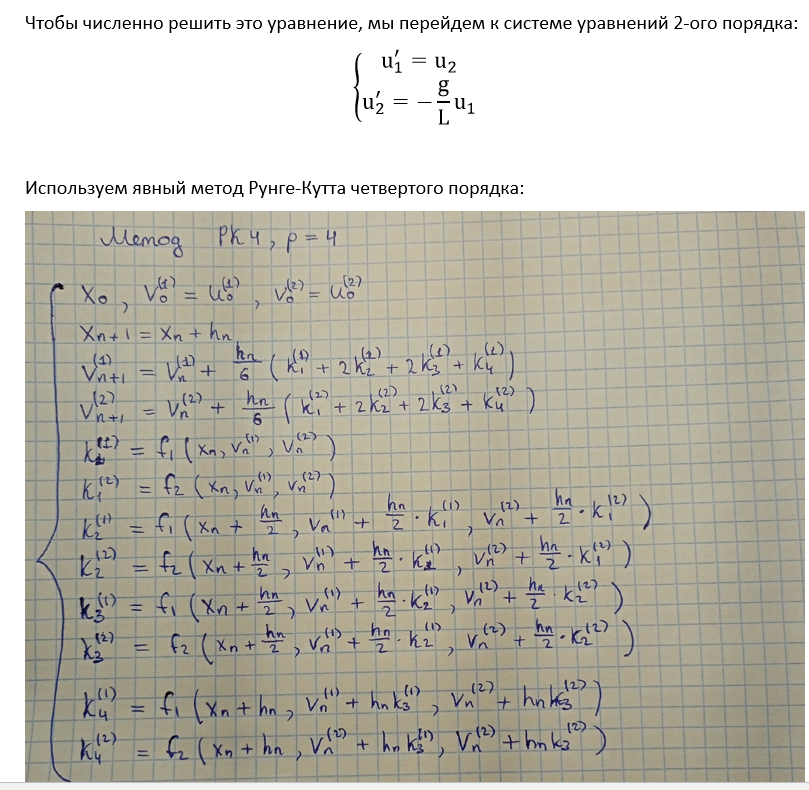 Чтобы численно решить это уравнение, мы перейдем к системе уравнений 2-ого порядка:
u₁′ = u₂
u₂′ = − g/L u₁
Используем явный метод Рунге-Кутта четвертого порядка:
Метод РК4, p = 4
x₀, v₀⁽¹⁾ = u₀⁽¹⁾, v₀⁽²⁾ = u₀⁽²⁾
xₙ₊₁ = xₙ + hₙ
vₙ₊₁⁽¹⁾ = vₙ⁽¹⁾ + hₙ/6 (k₁⁽¹⁾ + 2k₂⁽¹⁾ + 2k₃⁽¹⁾ + k₄⁽¹⁾)
vₙ₊₁⁽²⁾ = vₙ⁽²⁾ + hₙ/6 (k₁⁽²⁾ + 2k₂⁽²⁾ + 2k₃⁽²⁾ + k₄⁽²⁾)
k₁⁽¹⁾ = f₁ (xₙ, vₙ⁽¹⁾, vₙ⁽²⁾)
k₁⁽²⁾ = f₂ (xₙ, vₙ⁽¹⁾, vₙ⁽²⁾)
k₂⁽¹⁾ = f₁ (xₙ + hₙ/2, vₙ⁽¹⁾ + hₙ/2 · k₁⁽¹⁾, vₙ⁽²⁾ + hₙ/2 · k₁⁽²⁾)
k₂⁽²⁾ = f₂ (xₙ + hₙ/2, vₙ⁽¹⁾ + hₙ/2 · k₁⁽¹⁾, vₙ⁽²⁾ + hₙ/2 · k₁⁽²⁾)
k₃⁽¹⁾ = f₁ (xₙ + hₙ/2, vₙ⁽¹⁾ + hₙ/2 · k₂⁽¹⁾, vₙ⁽²⁾ + hₙ/2 · k₂⁽²⁾)
k₃⁽²⁾ = f₂ (xₙ + hₙ/2, vₙ⁽¹⁾ + hₙ/2 · k₂⁽¹⁾, vₙ⁽²⁾ + hₙ/2 · k₂⁽²⁾)
k₄⁽¹⁾ = f₁ (xₙ + hₙ, vₙ⁽¹⁾ + hₙk₃⁽¹⁾, vₙ⁽²⁾ + hₙk₃⁽²⁾)
k₄⁽²⁾ = f₂ (xₙ + hₙ, vₙ⁽²⁾ + hₙk₃⁽¹⁾, vₙ⁽²⁾ + hₙk₃⁽²⁾)